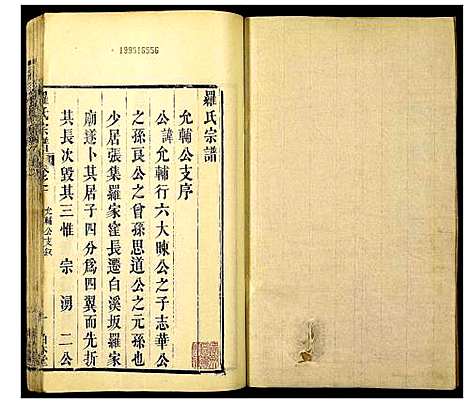 199516556
羅氏宗譜
允輔公支序
公諱允輔行六大暕公之子志華公
之孫良公之曾孫思道公之元孫也
少居張集羅家窪長遷白溪坂羅家
廟遂卜其居子四分為四翼而先折
其長次毀其三惟宗湧二公
羅氏宗譜
允輔公支叙